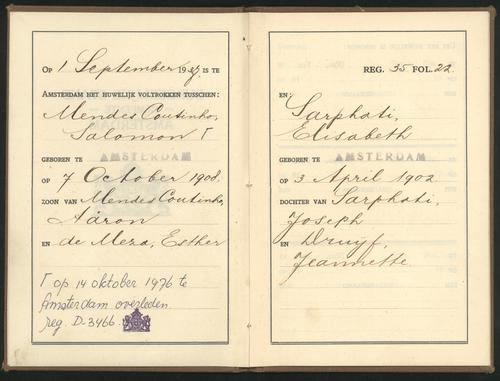 OP 1 September 1937. IS TE
AMSTERDAM HET HUWELIJK VOLTROKKEN TUSSCHEN:
Mendes Coutinho,
Salomon Γ
GEBOREN TE AMSTERDAM
OP 7 October 1908.
ZOON VAN Mendes Coutinho,
Aäron
EN de Meza, Esther
Γ op 14 oktober 1976 te
Amsterdam overleden
reg. D-3466
REG. 35 FOL. 22.
EN:
Sarphati,
Elisabeth
GEBOREN TE AMSTERDAM
OP 3 April 1902
DOCHTER VAN Sarphati,
Joseph
EN Druijf,
Jeannette